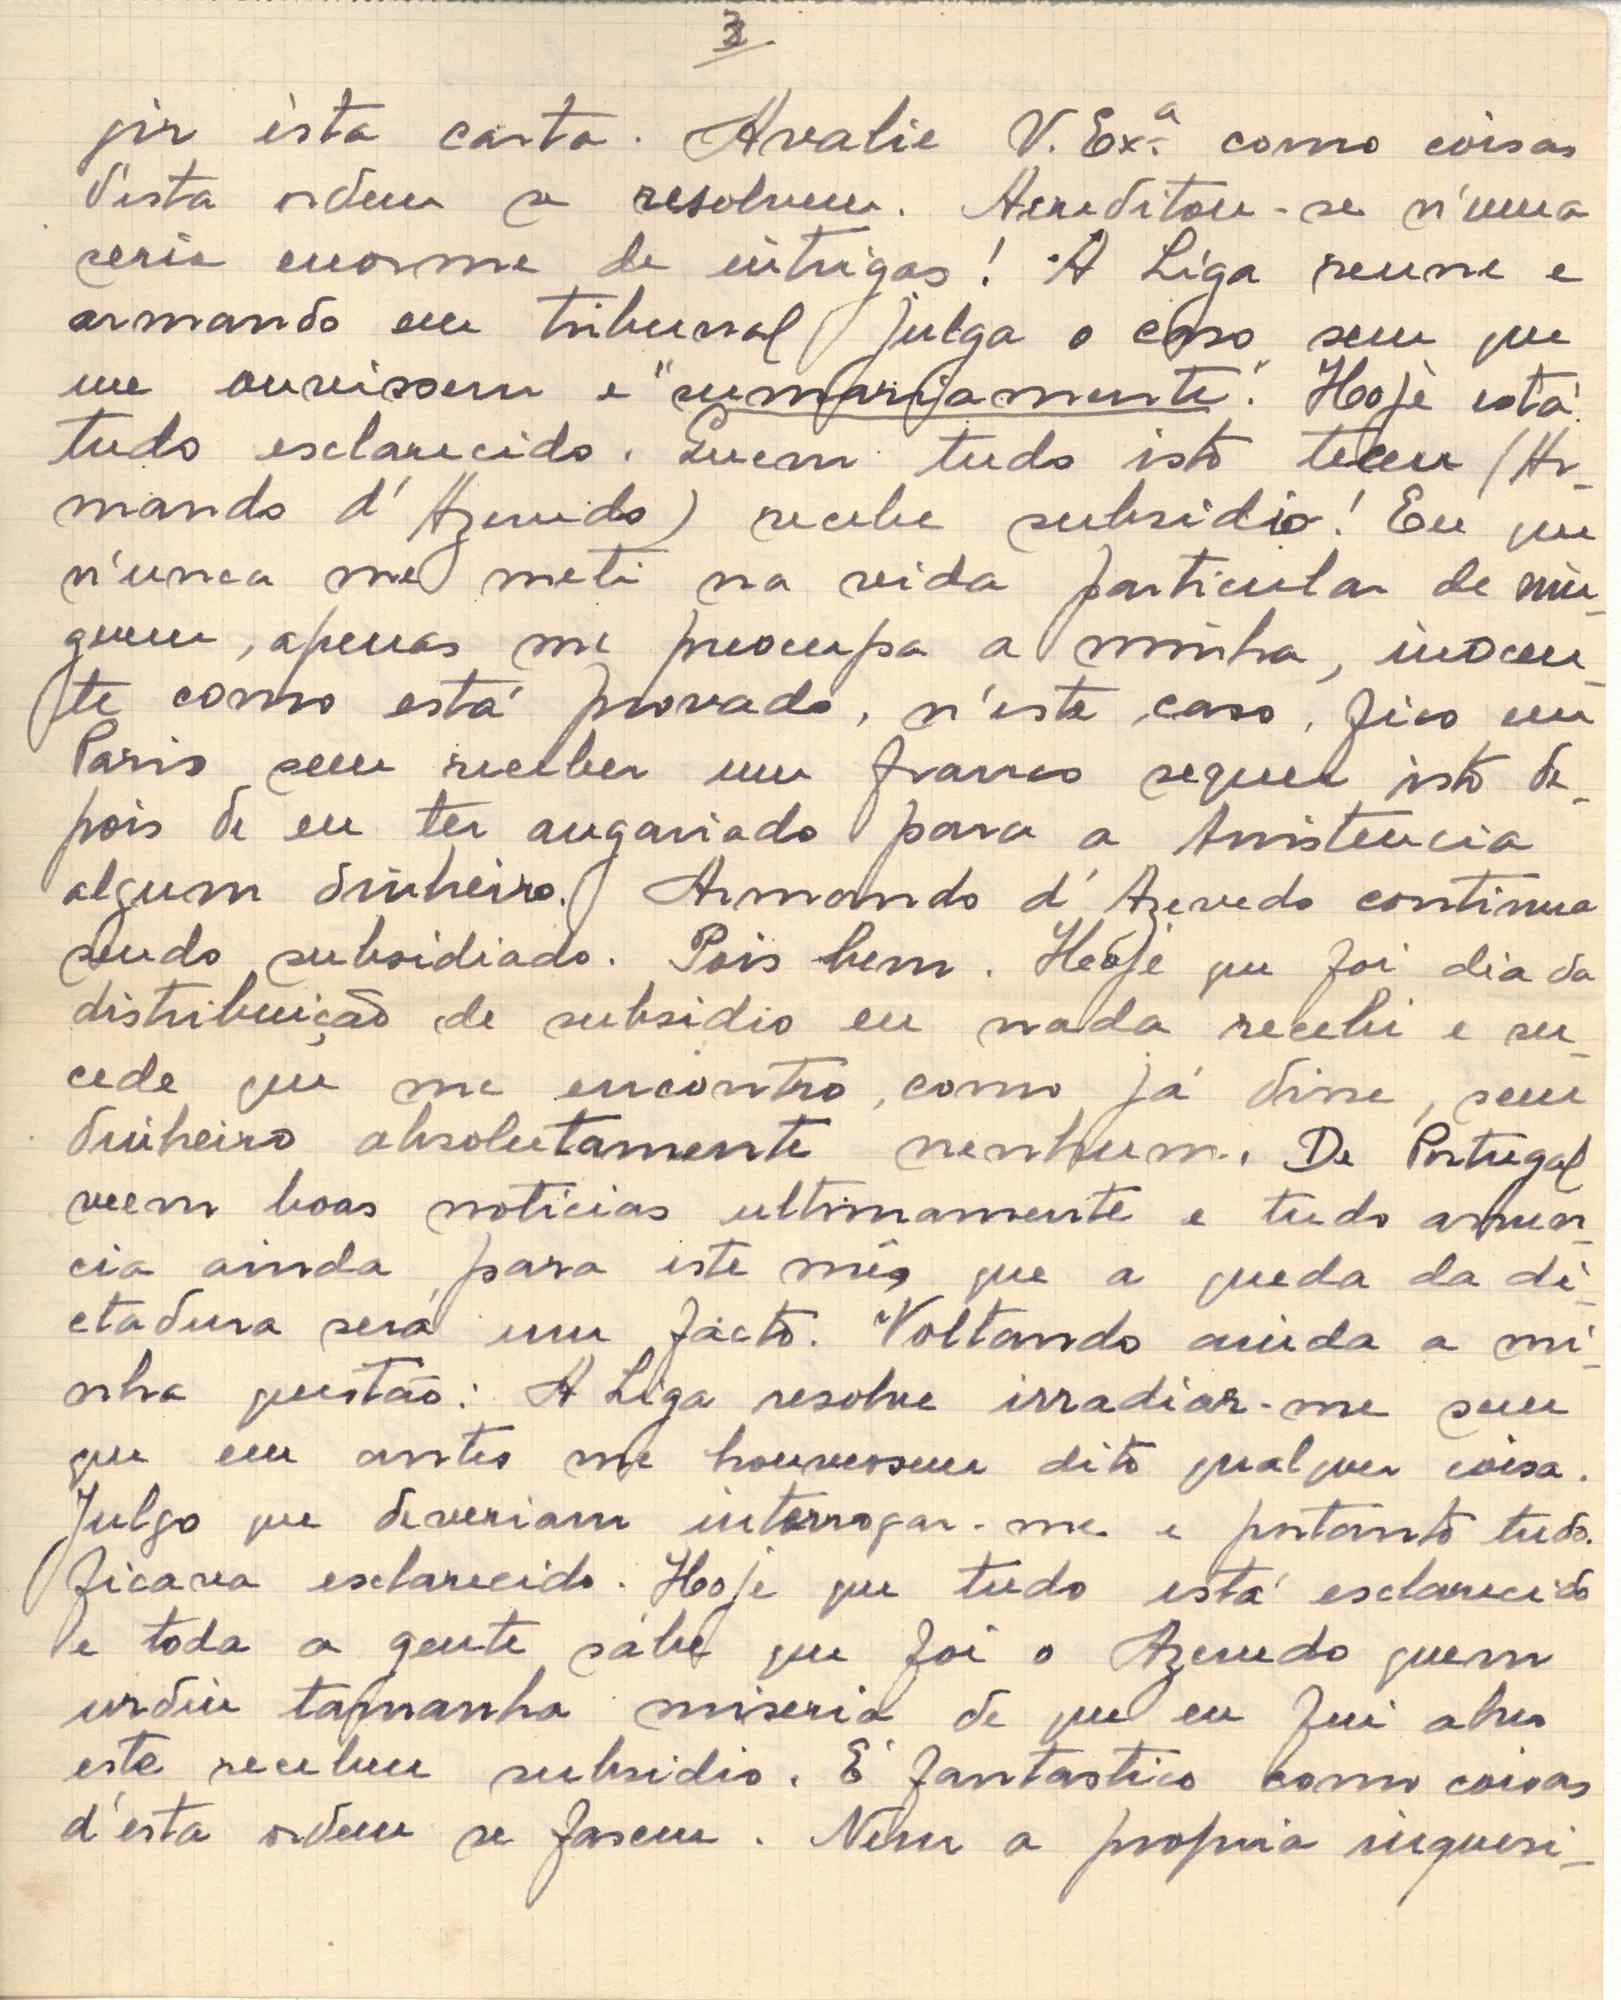 3
gir ésta carta. Avalie V. Exª. como coisas
d'esta ordem se resolvem. Acreditou-se n'uma
serie enorme de intrigas! A Liga reune e
armando em tribunal julga o caso sem que
me ouvissem e "sumariamente". Hoje está
tudo esclarecido. Quem tudo isto teceu (Ar-
mando d'Azevedo) recebe subsidio! Eu que
n'unca me meti na vida particular de nin-
guem, apenas me preocupa a minha, inocen-
te como está provado, n'este caso, fico em
Paris sem receber um franco sequer isto de-
pois de eu ter angariado para a Assistencia
algum dinheiro. Armando d'Azevedo continua
sendo subsidiado. Pois bem. Hoje que foi dia da
distribuição de subsidio eu nada recebi e su-
cede que me encontro, como já disse, sem
dinheiro absolutamente nenhum. De Portugal
veem boas noticias ultimamente e tudo anun-
cia ainda para este mês que a queda da di-
ctadura será um facto. Voltando ainda a mi-
nha questão: A Liga resolve irradiar-me sem
que em antes me houvessem dito qualquer coisa.
Julgo que deveriam interrogar-me e portanto tudo
ficava esclarecido. Hoje que tudo está esclarecido
e toda a gente sábe que foi o Azevedo quem
urdiu tamanha miseria de que eu fui alvo
este recebeu subsidio. É fantastico como coisas
d'esta ordem se fasem. Nem a propria inquesi-